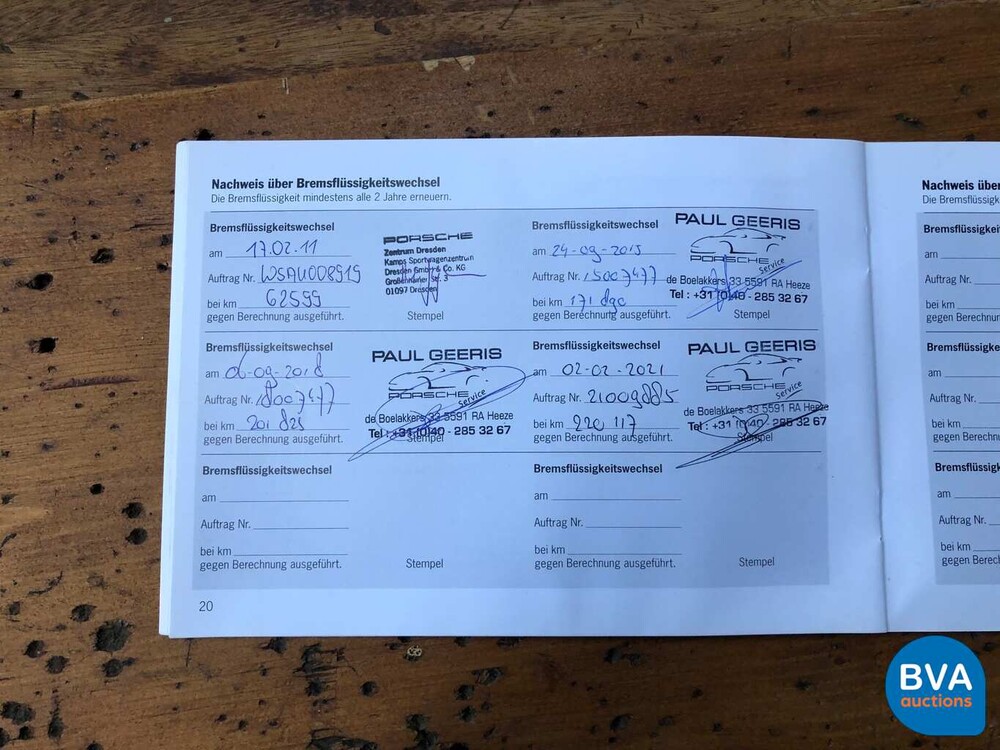 Nachweis über Bremsflüssigkeitswechsel
Die Bremsflüssigkeit mindestens alle 2 Jahre erneuern.
Bremsflüssigkeitswechsel
am 17.02.11
Auftrag Nr. WSAU008919
bei km 62599
gegen Berechnung ausgeführt.
PORSCHE
Zentrum Dresden
Kamps Sportwagenzentrum
Dresden GmbH & Co. KG
Großenhainer Str. 3
01097 Dresden
Stempel
Bremsflüssigkeitswechsel
am 24-09-2015
Auftrag Nr. 15007477
bei km 171
gegen Berechnung ausgeführt.
PAUL GEERIS
PORSCHE
Service
de Boelakkers 33 5591 RA Heeze
Tel : +31 (0)40 - 285 32 67
Stempel
Bremsflüssigkeitswechsel
am 06-09-2018
Auftrag Nr. 18007477
bei km 201
gegen Berechnung ausgeführt.
PAUL GEERIS
PORSCHE
Service
de Boelakkers 33 5591 RA Heeze
Tel : +31 (0)40 - 285 32 67
Stempel
Bremsflüssigkeitswechsel
am 02-02-2021
Auftrag Nr.
bei km 220 117
gegen Berechnung ausgeführt.
PAUL GEERIS
PORSCHE
Service
de Boelakkers 33 5591 RA Heeze
Tel : +31 (0)40 - 285 32 67
Stempel
Bremsflüssigkeitswechsel
am
Auftrag Nr.
bei km
gegen Berechnung ausgeführt.
Stempel
Bremsflüssigkeitswechsel
am
Auftrag Nr.
bei km
gegen Berechnung ausgeführt.
Stempel
20
Nachweis über
Die Bremsflüssigk
Bremsflüssigke
am
Auftrag Nr.
bei km
gegen Berechn
Bremsflüssigke
am
Auftrag Nr.
bei km
gegen Berechn
Bremsflüssigk
am
Auftrag Nr.
bei km
gegen Berec
BVA
auctions